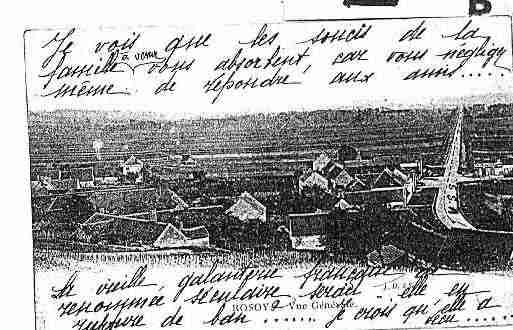 Je vois que les soucis de la
famille à venir vous absorbent, car vous négligez
même de répondre aux amis.....
La vieille galanterie française de
renommée séculaire, serait elle en
ROSOY - Vue Générale
rupture de ban ...... je crois qu'elle a